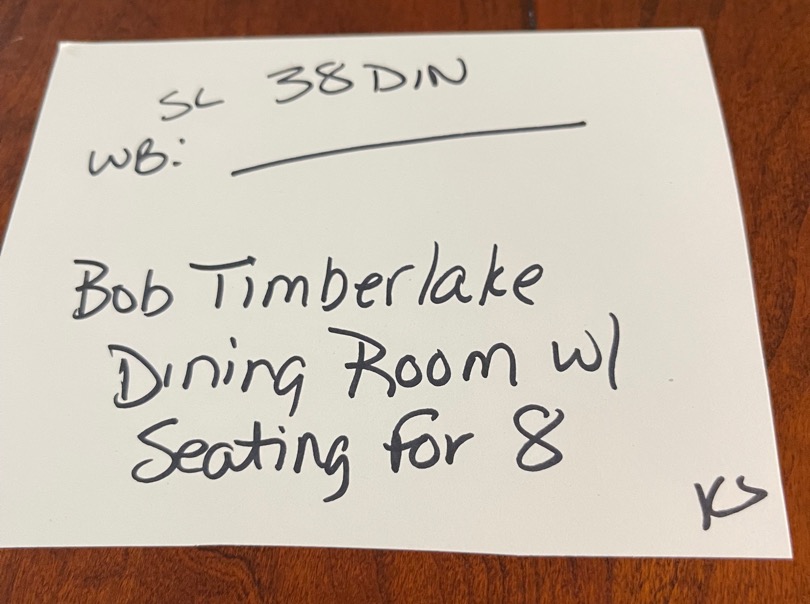 SL 38DIN
WB: 
Bob Timberlake
Dining Room w/
Seating for 8
KS